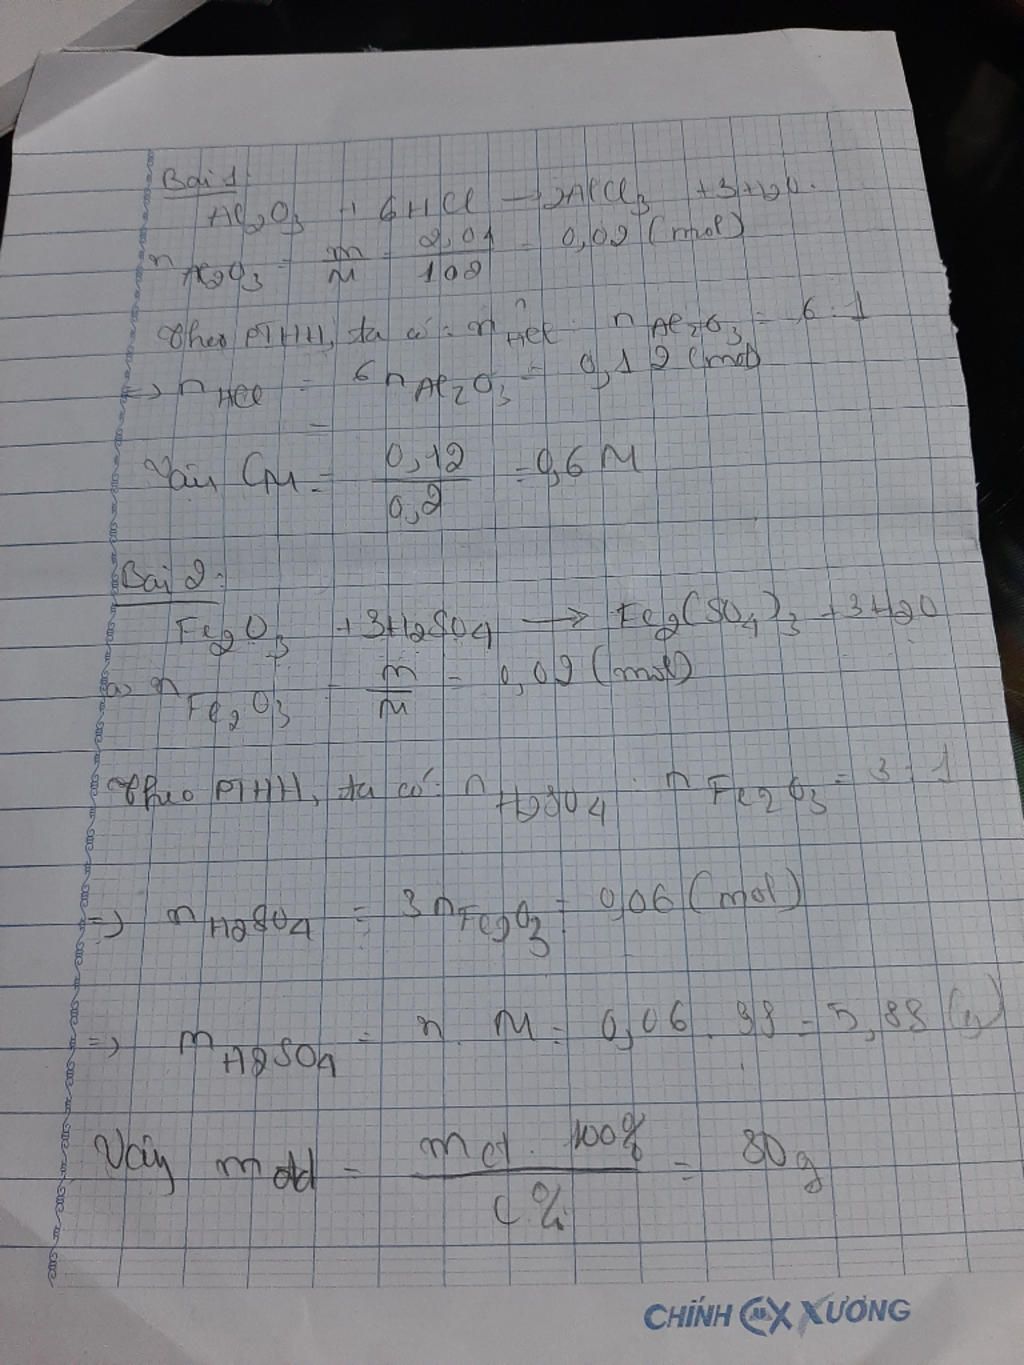 Bài 1:
Al2O3 + 6HCl → 2AlCl3 + 3H2O.
nAl2O3 = m/M = 2,04/102 = 0,02 (mol)
Theo PTHH, ta có: nHCl : nAl2O3 = 6 : 1
=> nHCl = 6nAl2O3 = 0,12 (mol)
=
Vậy CM = 0,12/0,2 = 0,6 M
Bài 2:
Fe2O3 + 3H2SO4 → Fe2(SO4)3 + 3H2O
a) nFe2O3 = m/M = 0,02 (mol)
Theo PTHH, ta có: nH2SO4 : nFe2O3 = 3 : 1
=> nH2SO4 = 3nFe2O3 = 0,06 (mol)
=> mH2SO4 = n . M = 0,06 . 98 = 5,88 (g)
Vậy mdd = mct . 100%/C% = 80g
CHÍNH XƯƠNG